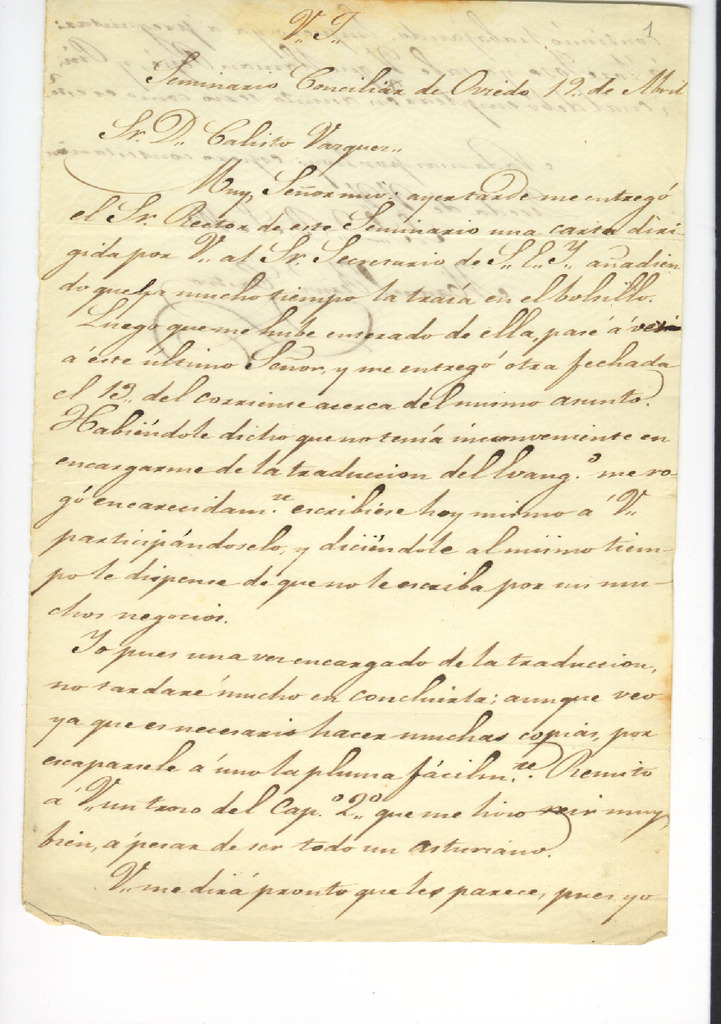 1
V. J.
Seminario Conciliar de Oviedo 19 de Abril
Sr. D. Calisto Varquez
Muy Señor mio: ayer tarde me entregó
el Sr. Rector de este Seminario una carta diri-
gida por V. al Sr. Secretario de S. E. I. añadien-
do que ha mucho tiempo la traia en el bolsillo.
Luego que me hube enterado de ella, pasé á ver
á este último Señor, y me entregó otra fechada
el 13. del corriente acerca del mismo asunto.
Habiéndole dicho que no tenia inconveniente en
encargarme de la traduccion del Evang.o me ro-
gó encarecidam.te escribiese hoy mismo á V.
participándoselo, y diciéndole al mismo tiem-
po le dispense de que no le escriba por sus mu-
chos negocios.
Yo pues una vez encargado de la traduccion,
no tardaré mucho en concluirla; aunque veo
ya que es necesario hacer muchas copias, por
escapársele á uno la pluma fácilm.te Remito
á V. un trozo del Cap.o 2.o que me hizo reir muy
bien, á pesar de ser todo un asturiano.
V. me dirá pronto que les parece, pues yo